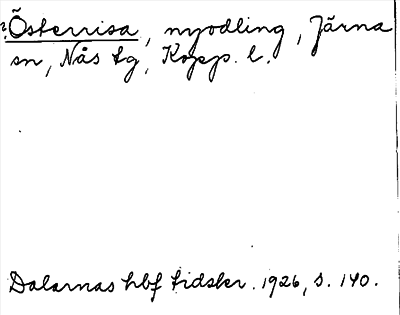 Österrisa, nyodling, Järna
sn, Nås tg, Kopp. l.
Dalarnas hbf tidskr. 1926, s. 140.